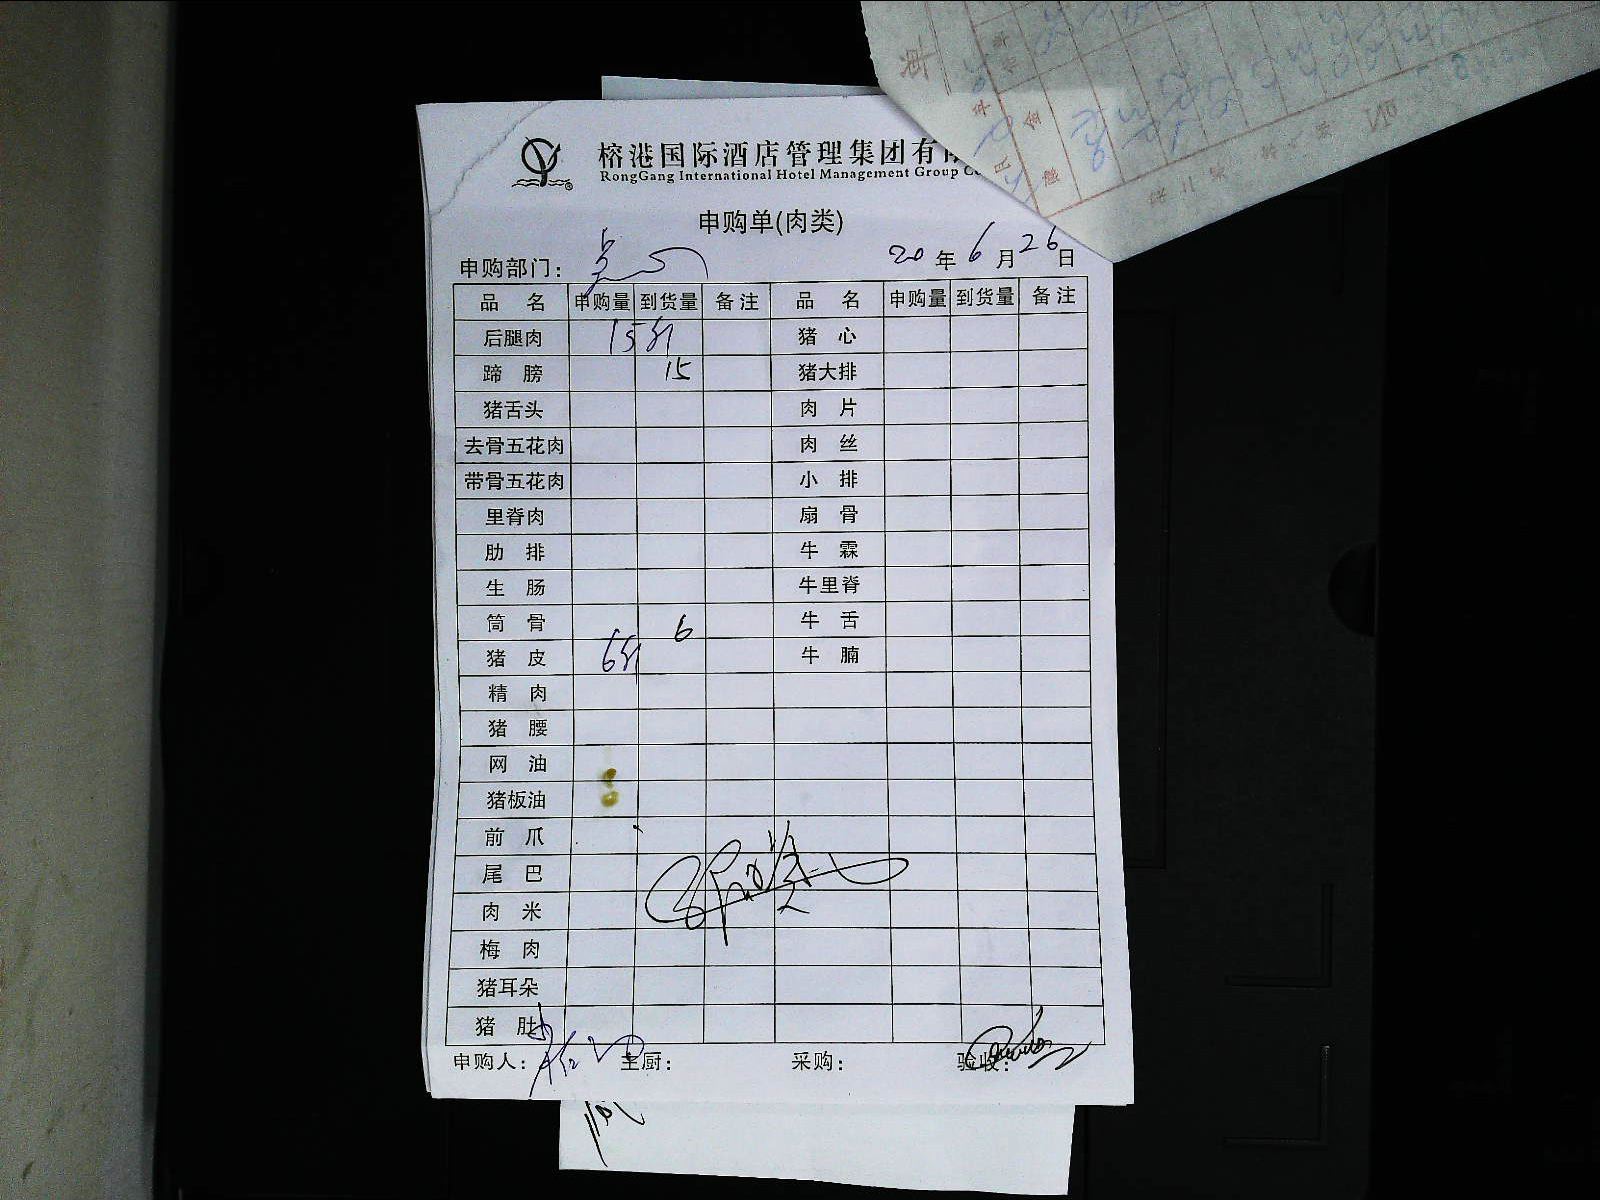 榕港国际酒店管理集团有
RongGang International Hotel Management Group
申购单(肉类)
申购部门: 20年6月26日
品 名 申购量 到货量 备注 品 名 申购量 到货量 备注
后腿肉 15斤 猪 心
蹄 膀 15 猪大排
猪舌头 肉 片
去骨五花肉 肉 丝
带骨五花肉 小 排
里脊肉 扇 骨
肋 排 牛 霖
生 肠 牛里脊
筒 骨 6 牛 舌
猪 皮 6斤 牛 腩
精 肉
猪 腰
网 油
猪板油
前 爪
尾 巴
肉 米
梅 肉
猪耳朵
猪 肚
申购人: 主厨: 采购: 验收: